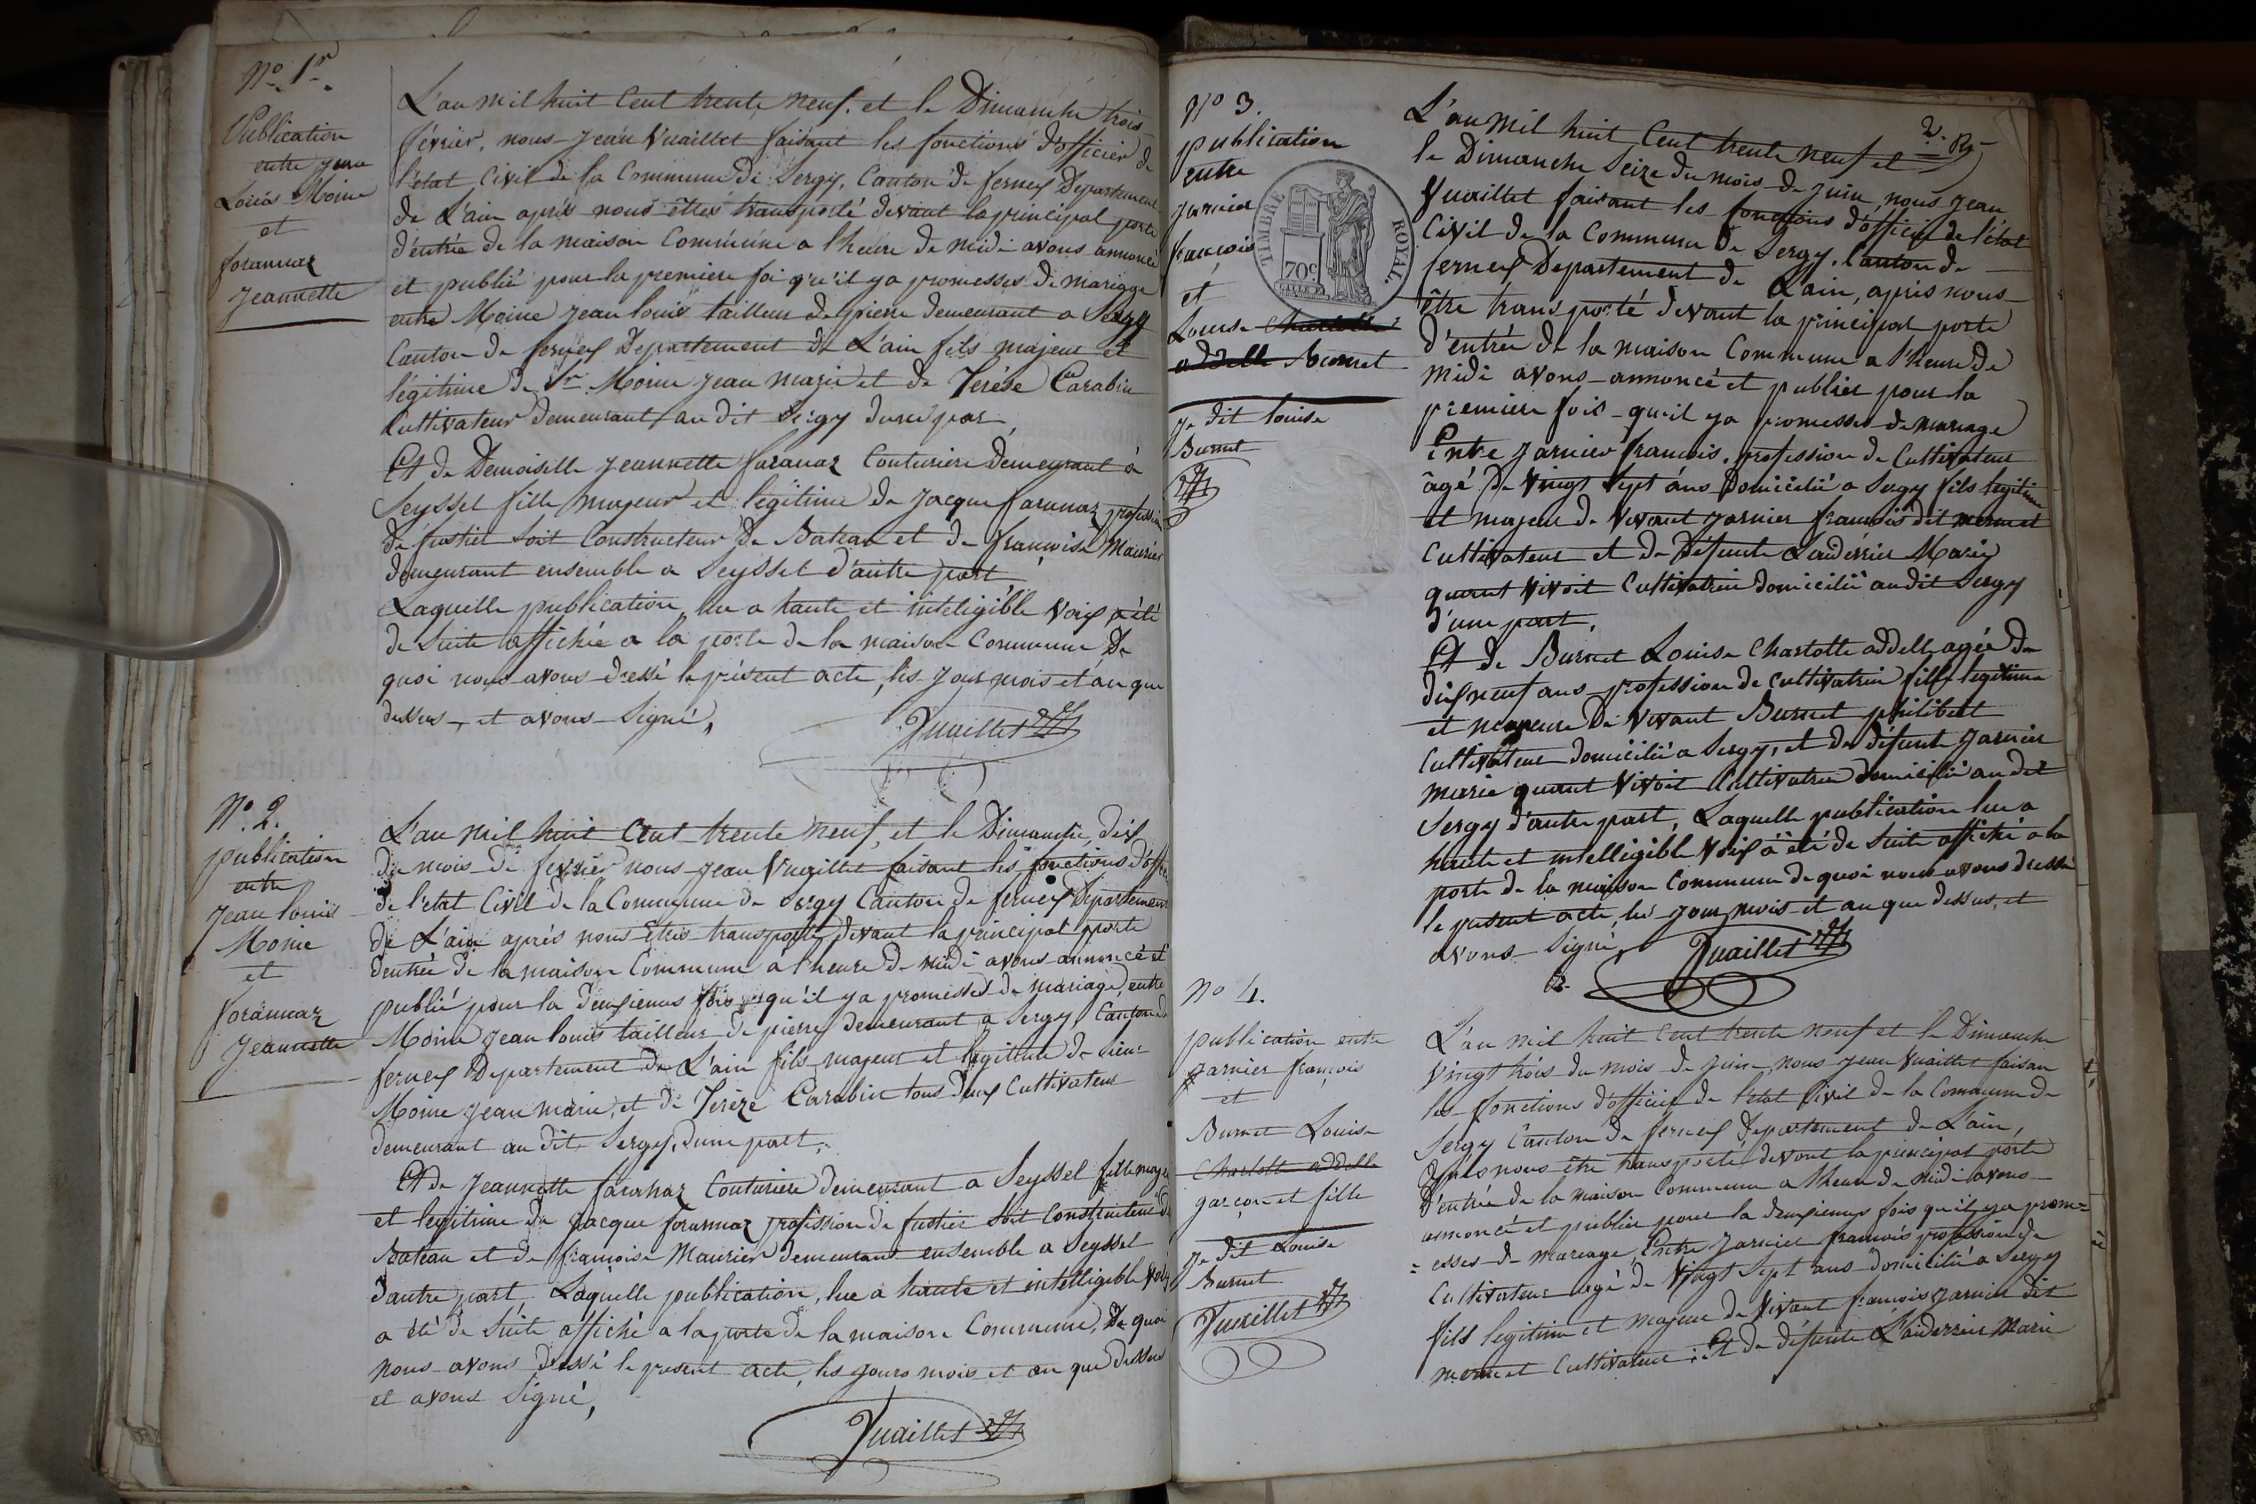 N° 1r.
Publication
entre Jean
Louis Moine
et
foramaz
Jeannette
L'an mil huit Cent trente neuf. et le Dimanche trois
février, nous Jean Vuaillet faisant les fonctions d'officier de
l'état Civil de la Commune de Sergy, Canton de ferney Departement
de L'ain aprés nous êtres transporté devant la principal porte
d'entrée de la maison Commune a l'heure de midi avons annoncé
et publié pour la premiere foi qu'il ya promesses de mariage
entre Moine Jean louis tailleur de pierre demeurant a Sergy
Canton de ferney Departement de L'ain fils majeur et
légitime de Sr Moine Jean marie et de Terése Carabin
Cultivateur demeurant au dit Sergy dune par
Et de Demoiselle Jeannette faramaz Couturiere Demeurant à
Seyssel fille majeur et légitime de Jacque faramaz profession
de fustier soit Constructeur de Bateau et de françoise Maurier
demeurant ensemble a Seyssel d'autre part
Laquelle publication lu a haute et inteligible Voix a été
de Suite affichée a la porte de la maison Commune De
quoi nous avons dressé le présent acte, les jour mois et an que
dessus, et avons Signé,
Vuaillet
N° 2.
publication
entre
Jean louis
Moine
et
foramaz
Jeannette
L'an mil huit Cent trente neuf, et le Dimanche, dix
du mois de fevrier nous Jean Vuaillet faisant les fonctions d'offi
de l'etat Civil de la Commune de Sergy Canton de ferney Departement
de L'ain aprés nous êtres transporté devant la principal porte
dentrée de la maison Commune á l'heure de midi avons annoncé et
publié pour la deuxiemes fois qu'il ya promesses de mariage entre
Moine Jean louis tailleur de pierre demeurant a Sergy, Canton de
ferney Departement de L'ain fils majeur et légitime de Sieur
Moine Jean marie, et de Terèze Carabin tous deux Cultivateur
demeurant au dit Sergy, dune part,
Et de Jeannette faramaz Couturiere demeurant a Seyssel fille majeur
et legitime de Jacque foramaz profession de fustier soit Constructeur de
Bateau et de françoise Maurier demeurant ensemble a Seyssel
d'autre part Laquelle publication, lue a haute et intelligible Voix
a été de Suite affiché a la porte de la maison Commune, De quoi
nous avons dressé le present acte, les jours mois et an que dessus
et avons Signé,
Vuaillet
N° 3.
publication
entre
Jarnier
françois
et
Louise Charlotte
addelle Burnet
Je dit louise
Burnet
TIMBRE ROYAL
70c
2.
L'an mil huit Cent trente neuf et
le Dimanche Seize du mois de Juin, nous Jean
Vuaillet faisant les fonctions d'officier de l'état
Civil de la Commune de Sergy, Canton de
ferney Departement de L'ain, aprés nous
être transporté devant la principal porte
d'entrée de la maison Commune a l'heure de
midi avons annoncé et publier pour la
premiere fois qu'il ya promesses de mariage
Entre Jarnier françois, profession de Cultivateur
âgé de Vingt Sept áns Domicilié a Sergy fils legitime
et majeur de Vivant Jarnier françois dit mermet
Cultivateur et de Défunte Laiderrier Marie
quant Vivoit Cultivatrice domicilié au dit Sergy
d'une part,
Et de Burnet Louise Charlotte addelle agée de
dix neuf ans profession de cultivatrice fille legitime
et mineure de Vivant Burnet philibert
Cultivateur domicilié a Sergy, et de défunte Jarnier
marie quant Vivoit Cultivatrice domicilié au dit
Sergy d'autre part, Laquelle publication lue a
haute et intelligible Voix à été de Suite affiché a la
porte de la maison Commune de quoi nous avons dressé
le present acte, les Jour mois et an que dessus, et
avons Signé,
Vuaillet
N° 4.
publication entre
Jarnier françois
et
Burnet Louise
Charlotte addelle
garçon et fille
Je dit Louise
Burnet
Vuaillet
L'an mil huit Cent trente neuf et le Dimanche
Vingt trois du mois de Juin, nous Jean Vuaillet faisan
les fonctions d'officier de l'etat Civil de la Commune de
Sergy Canton de ferney Departement de L'ain,
Aprés nous être transporté devant la principal porte
D'entrée de la maison Commune a l'heure de midi avons
annoncé et publier pour la deuxiemes fois qu'il ya prom=
=esses de mariage, Entre Jarnier francois profession de
Cultivateur agé de Vingt Sept ans domicilié a Sergy
fils legitime et majeur de Vivant françois Jarnier dit
mermet Cultivateur; Et de défunte Laiderrier Marie